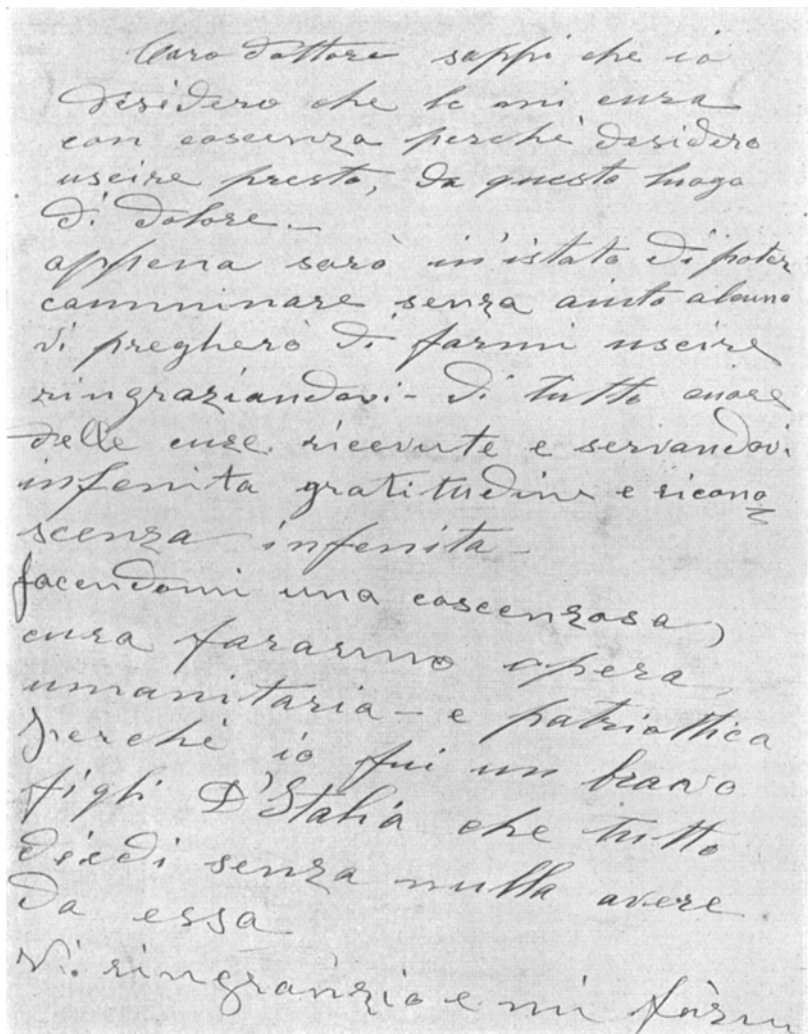 Caro dottore sappi che io
desidero che le mi cura
con coscenza perchè desidero
uscire presto, da questo luogo
di dolore. -
appena sarò in'istato di poter
camminare senza aiuto alcuno
vi pregherò di farmi uscire
ringraziandovi - di tutto cuore
delle cure ricevute e servandovi
infenita gratitudine e ricono
scenza infenita
facendomi una coscenzosa,
cura fararnno opera,
umanitaria - e patriottica
perchè io fui un bravo
figli D'Italia che tutto
diedi senza nulla avere
da essa
Vi ringranzio e mi